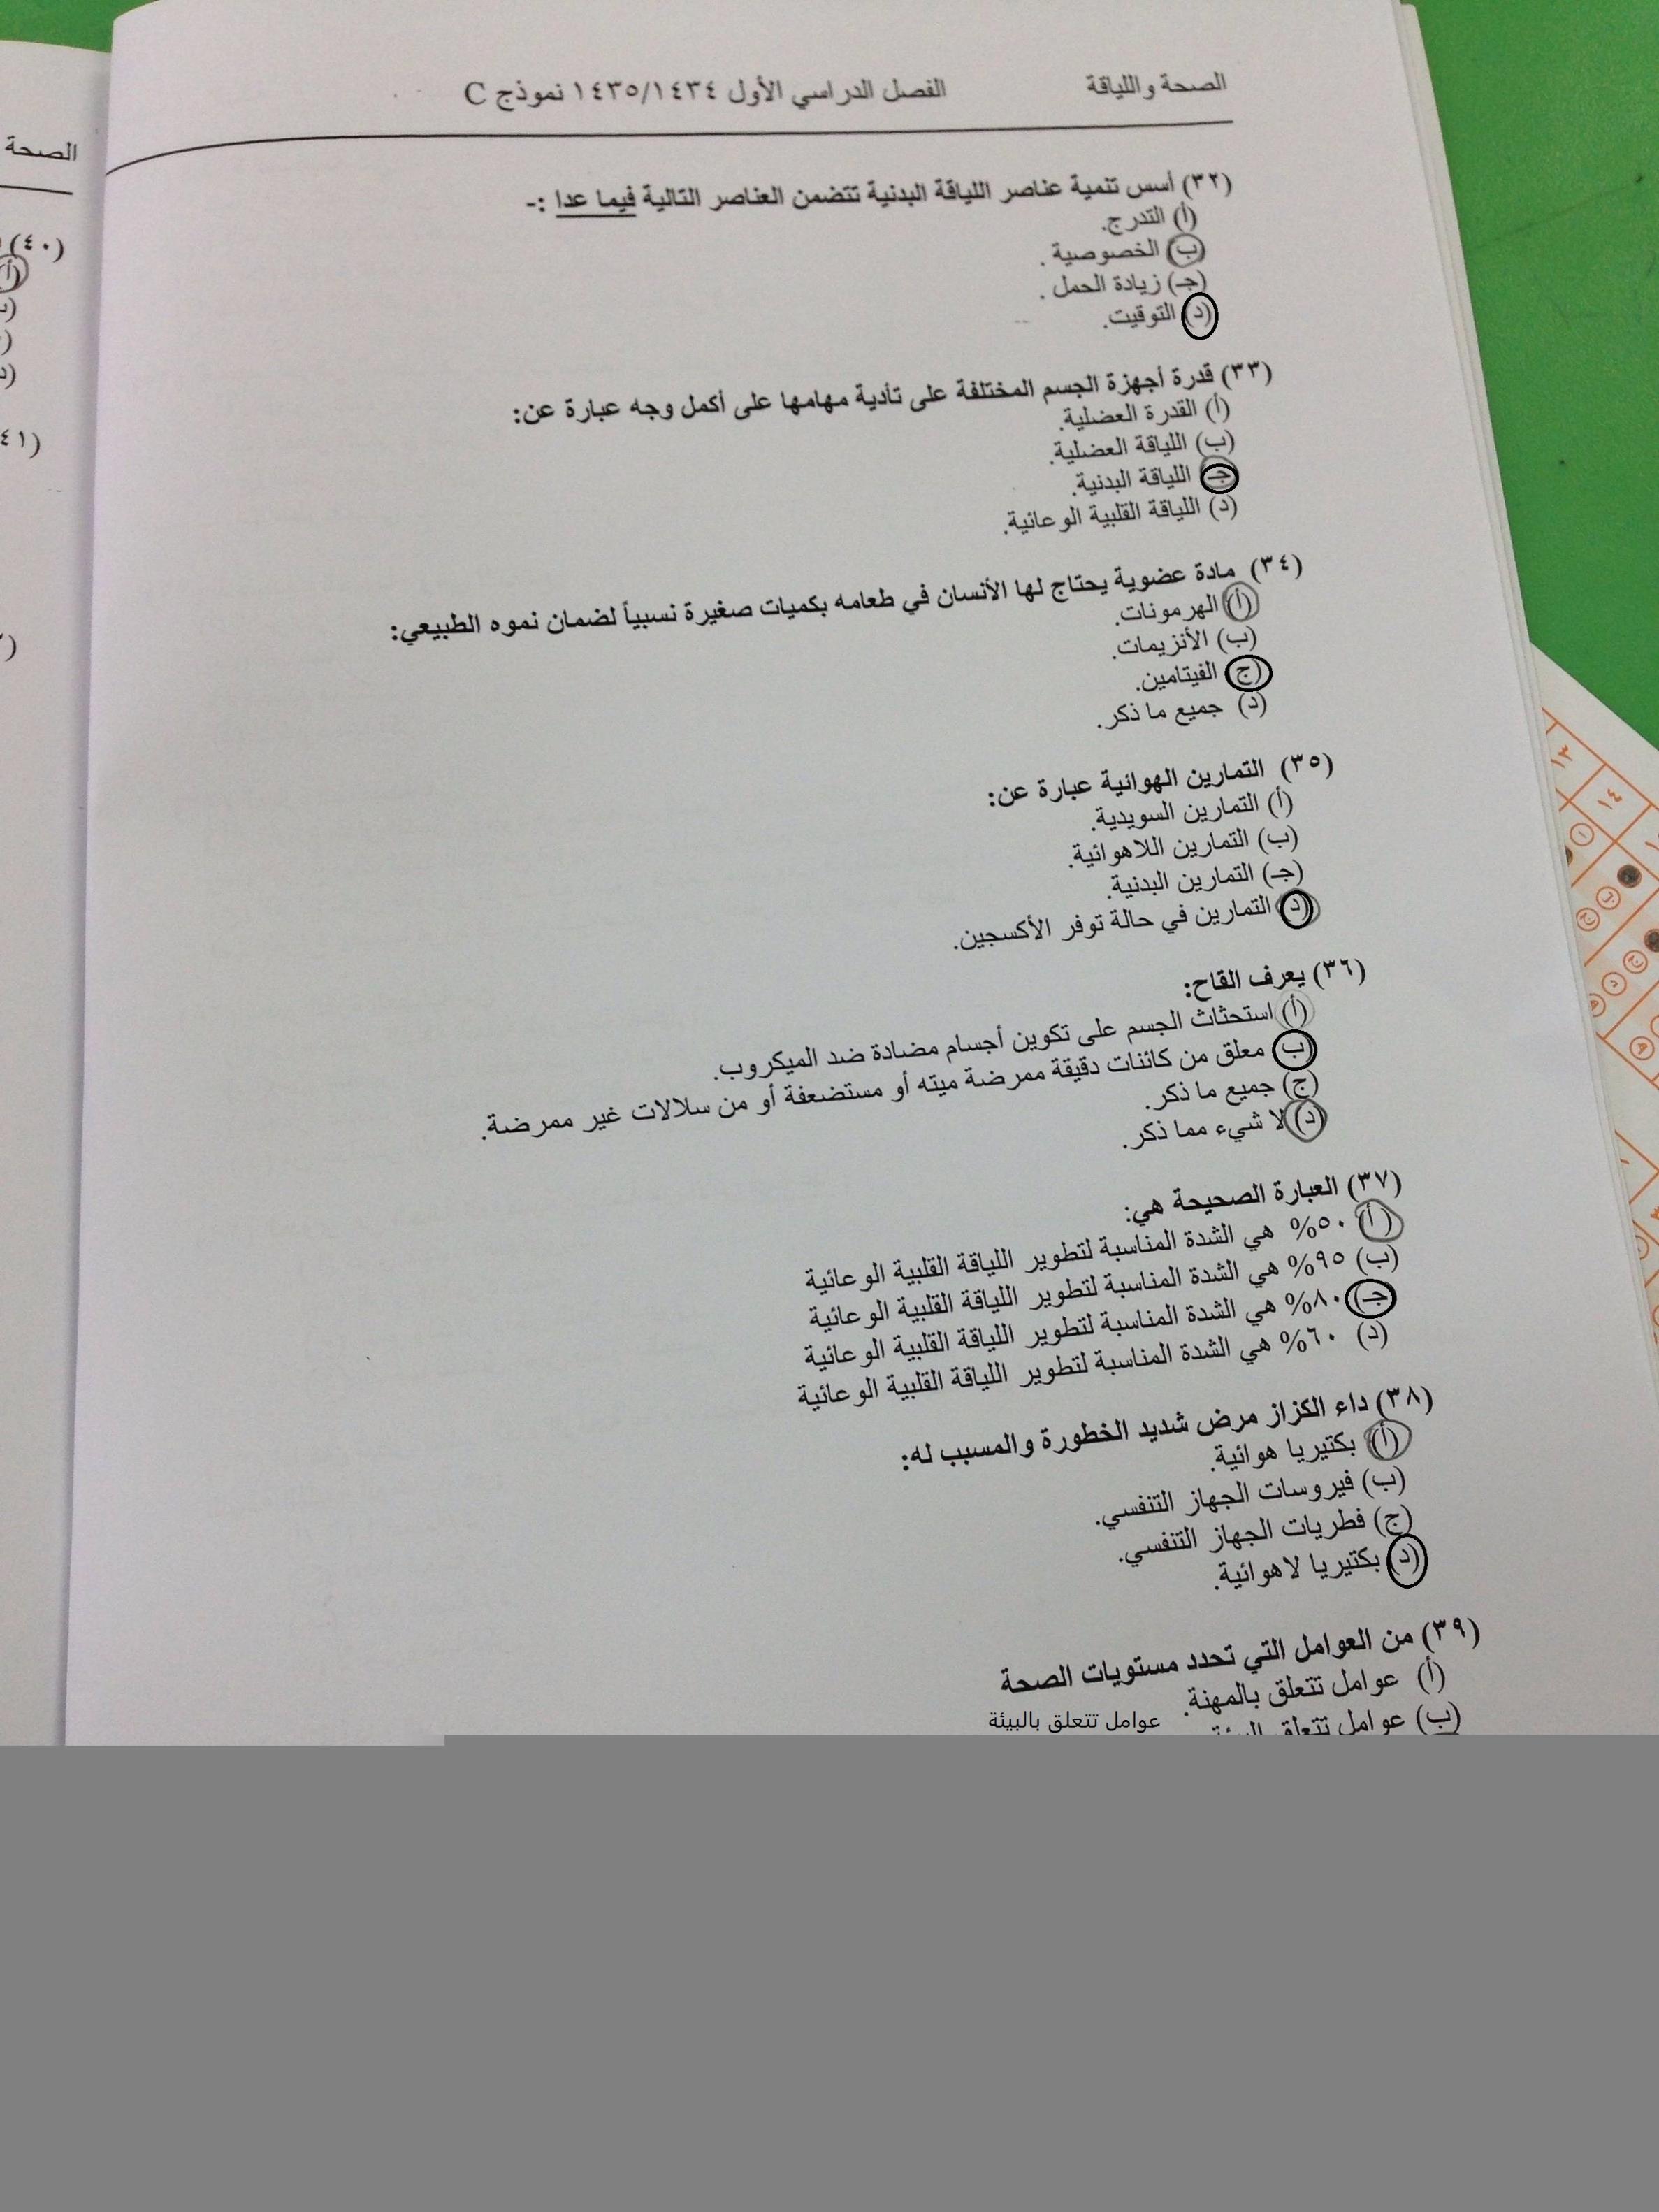 الصحة واللياقة الفصل الدراسي الأول ١٤٣٥/١٤٣٤ نموذج C
(٣٢) أسس تنمية عناصر اللياقة البدنية تتضمن العناصر التالية فيما عدا :-
(أ) التدرج.
(ب) الخصوصية .
(جـ) زيادة الحمل .
(د) التوقيت.
(٣٣) قدرة أجهزة الجسم المختلفة على تأدية مهامها على أكمل وجه عبارة عن:
(أ) القدرة العضلية.
(ب) اللياقة العضلية.
(جـ) اللياقة البدنية.
(د) اللياقة القلبية الوعائية.
(٣٤) مادة عضوية يحتاج لها الأنسان في طعامه بكميات صغيرة نسبياً لضمان نموه الطبيعي:
(أ) الهرمونات.
(ب) الأنزيمات.
(ج) الفيتامين.
(د) جميع ما ذكر.
(٣٥) التمارين الهوائية عبارة عن:
(أ) التمارين السويدية.
(ب) التمارين اللاهوائية.
(جـ) التمارين البدنية.
(د) التمارين في حالة توفر الأكسجين.
(٣٦) يعرف القاح:
(أ) استحثاث الجسم على تكوين أجسام مضادة ضد الميكروب.
(ب) معلق من كائنات دقيقة ممرضة ميته أو مستضعفة أو من سلالات غير ممرضة.
(ج) جميع ما ذكر.
(د) لا شيء مما ذكر.
(٣٧) العبارة الصحيحة هي:
(أ) ٥٠% هي الشدة المناسبة لتطوير اللياقة القلبية الوعائية
(ب) ٩٥% هي الشدة المناسبة لتطوير اللياقة القلبية الوعائية
(جـ) ٨٠% هي الشدة المناسبة لتطوير اللياقة القلبية الوعائية
(د) ٦٠% هي الشدة المناسبة لتطوير اللياقة القلبية الوعائية
(٣٨) داء الكزاز مرض شديد الخطورة والمسبب له:
(أ) بكتيريا هوائية.
(ب) فيروسات الجهاز التنفسي.
(ج) فطريات الجهاز التنفسي.
(د) بكتيريا لاهوائية.
(٣٩) من العوامل التي تحدد مستويات الصحة
(أ) عوامل تتعلق بالمهنة.
(ب) عوامل تتعلق
عوامل تتعلق بالبيئة
الصحة
(٤٠)
(أ)
(٤١)
١٣
١٤